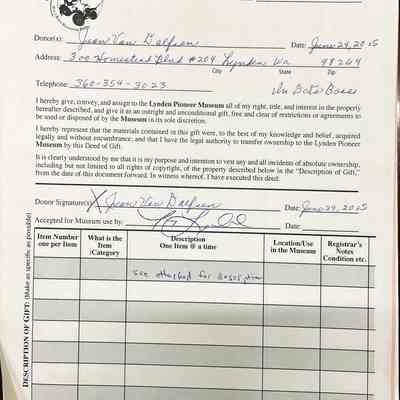 Donor(s): Jean Van Dalfsen Date: June 29, 2015
Address: 300 Homestead Blvd #204 Lynden Wa 98264
City State Zip
Telephone: 360-354-3023 In Beto's Boxes
I hereby give, convey, and assign to the Lynden Pioneer Museum all of my right, title, and interest in the property
hereafter described, and give it as an outright and unconditional gift, free and clear of restrictions or agreements to
be used or disposed of by the Museum in its sole discretion.
I hereby represent that the materials contained in this gift were, to the best of my knowledge and belief, acquired
legally and without encumbrance; and that I have the legal authority to transfer ownership to the Lynden Pioneer
Museum by this Deed of Gift.
It is clearly understood by me that it is my purpose and intention to vest any and all incidents of absolute ownership,
including but not limited to all rights of copyright, of the property described below in the "Description of Gift,"
from the date of this document forward. In witness whereof, I have executed this deed.
Donor Signature(s) X Jean Van Dalfsen Date: June 29, 2015
Accepted for Museum use by: Date:
DESCRIPTION OF GIFT: (Make as specific as possible)
Item Number one per Item
What is the Item /Category
Description One Item @ a time
Location/Use in the Museum
Registrar's Notes Condition etc.
see attached for description